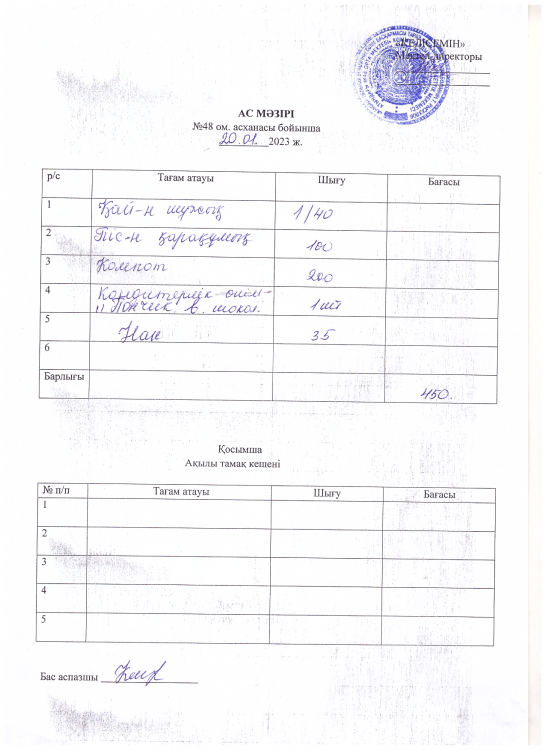 «КЕЛІСЕМІН»
Мектеп директоры
АС МӘЗІРІ
№48 ом. асханасы бойынша
20.01. 2023 ж.
р/с Тағам атауы Шығу Бағасы
1 Қай-н шұжық 1/40
2 Піс-н қарақұмық 100
3 Компот 200
4 Кондитерлік өнім-
"Пончик в шокол. 1 шт
5 Нан 35
6
Барлығы 450.
Қосымша
Ақылы тамақ кешені
№ п/п Тағам атауы Шығу Бағасы
1
2
3
4
5
Бас аспазшы